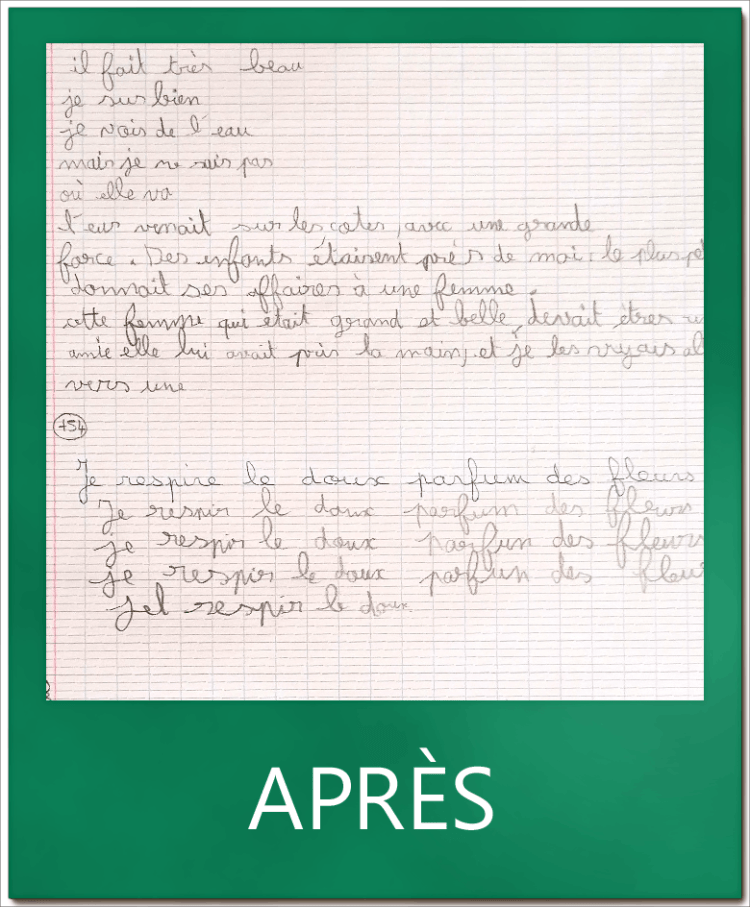 il fait très beau
je sus bien
je vois de l'eau
mais je ne suis pas
où elle va
l'eur venait sur les cotes, avec une grande
force. Des enfants étairent près de moi. le plus pé
donnait ses affaires à une femme.
cette femme qui était grand et belle, devait êtres u
amie elle lui avait pris la main, et je les vryais al
vers une
+54
Je respire le doux parfum des fleurs
Je respir le doux parfum des fleurs
je respir le doux parfum des fleurs
je respir le doux parfun des fleur
jel respir le doux
APRÈS